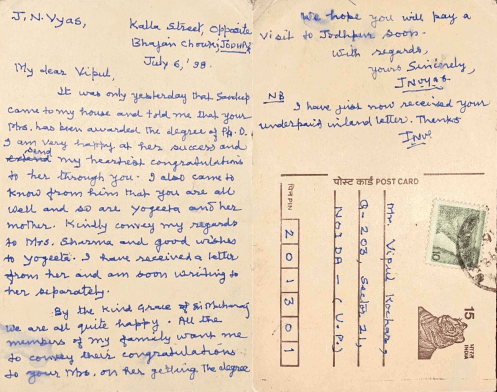 J. N. Vyas,
Kalla Street, Opposite
Bhajan Chowki, JODHPUR
July 6, '98.
My dear Vipul,
It was only yesterday that Sandeep
came to my house and told me that your
Mrs. has been awarded the degree of Ph. D.
I am very happy at her success and
send my heartiest congratulations
to her through you. I also came to
know from him that you are all
well and so are Yogeeta and her
mother. Kindly convey my regards
to Mrs. Sharma and good wishes
to Yogeeta. I have received a letter
from her and am soon writing to
her separately.
By the Kind Grace of Sri Maharaj
we are all quite happy. All the
members of my family want me
to convey their congratulations
to your Mrs. on her getting the degree
We hope you will pay a
visit to Jodhpur soon.
With regards,
yours Sincerely,
JNVyas
NB
I have just now received your
underpaid inland letter. Thanks
JNV.
पोस्ट कार्ड POST CARD
Mr. Vipul Kochar,
G-203, Sector 21,
NOIDA - (U.P.)
पिन PIN
201301
15
भारत
INDIA
10